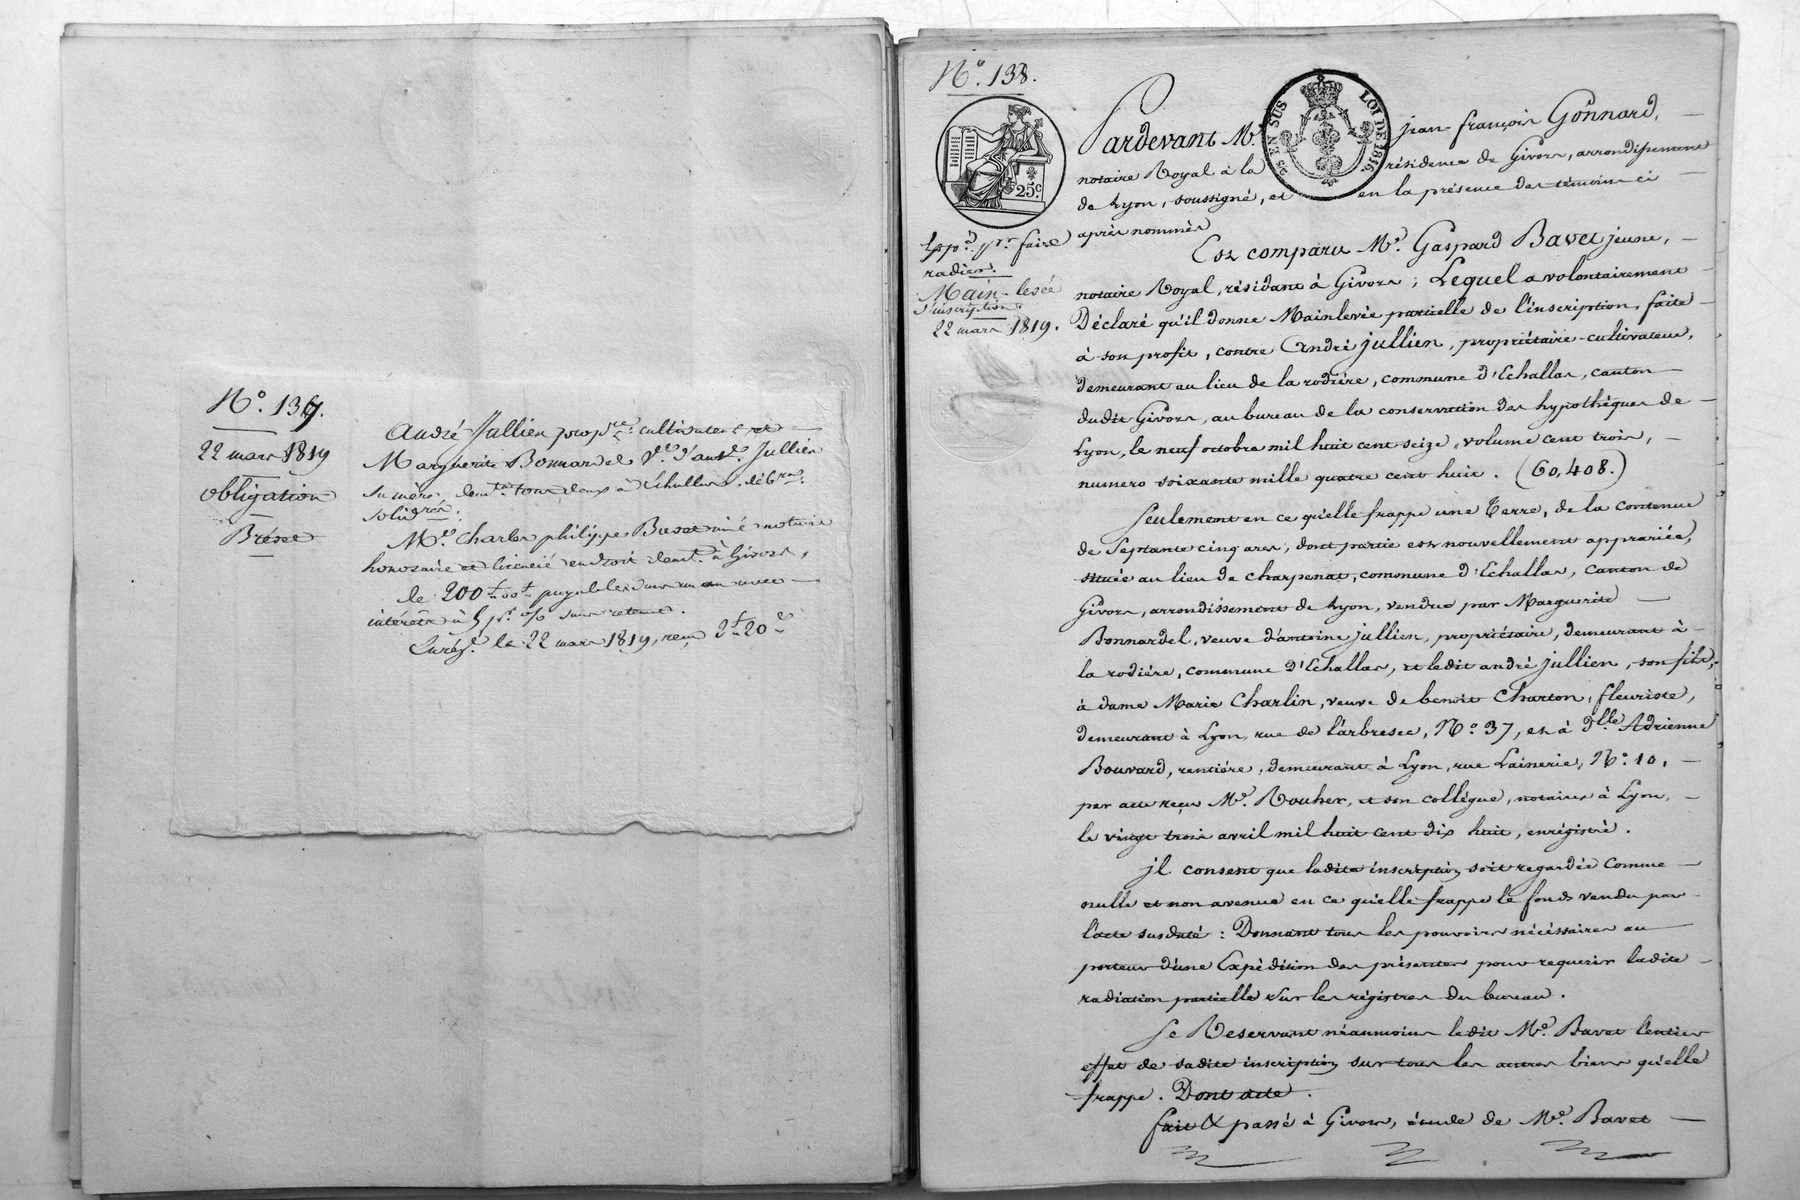 N.° 137.
22 mars 1819
obligation
Brévet
André Jullien prop.re cultivateur et
Marguerite Bonnardel V.e d'ant.e Jullien
sa mère, dem.t tous deux à Echallas, déb.rs
solid.res
M.e Charles philippe Bavet ainé notaire
honoraire et licencié en droit dem.t à Givors,
de 200 payables dans un an avec
intérêts à 5 p.r % sans retenue.
Enrég.é le 22 mars 1819, reçu 2f 20c
N.° 138.
25c.
2s EN SUS LOI DE 1816.
Exp.on p.r faire
radier.
Main-levée
d'inscription
22 mars 1819.
Pardevant M.e jean françois Gonnard,
notaire Royal à la résidence de Givors, arrondissement
de Lyon, soussigné, et en la présence des témoins ci
après nommés
Est comparu M.e Gaspard Bavet jeune,
notaire Royal, résidant à Givors; Lequel a volontairement
Déclaré qu'il donne Mainlevée partielle de l'inscription, faite
à son profit, contre André jullien, propriétaire-cultivateur,
demeurant au lieu de la rodière, commune d'Echallas, canton
dudit Givors, au bureau de la conservation des hypothèques de
Lyon, le neuf octobre mil huit cent seize, volume cent trois,
numero soixante mille quatre cent huit. (60,408.)
Seulement en ce qu'elle frappe une Terre, de la contenue
de Septante cinq ares, dont partie est nouvellement apprairiée,
située au lieu de charpenat, commune d'Echallas, canton de
Givors, arrondissement de Lyon, vendue par Marguerite
Bonnardel, veuve d'antoine jullien, propriétaire, demeurant à
la rodière, commune d'Echallas, et ledit andré jullien, son fils,
à dame Marie Charlin, veuve de benoit Charton, fleuriste,
demeurant à Lyon, rue de l'arbresec, N.° 37, et à d.lle Adrienne
Bouvard, rentière, demeurant à Lyon, rue Lainerie, N.° 10,
par acte reçu M.e Rouher, et son collègue, notaires à Lyon,
le vingt trois avril mil huit cent dix huit, enrégistré.
jl consent que ladite inscription soit regardée comme
nulle et non avenue en ce qu'elle frappe le fonds vendu par
l'acte susdaté : Donnant tous les pouvoirs nécéssaires au
porteur d'une Expédition des présentes pour requerir ladite
radiation partielle sur les régistres du bureau.
Se Reservant néaumoins ledit M.e Bavet l'entier
effet de sadite inscription sur tous les autres biens qu'elle
frappe. Dont acte.
fait & passé à Givors, étude de M.e Bavet